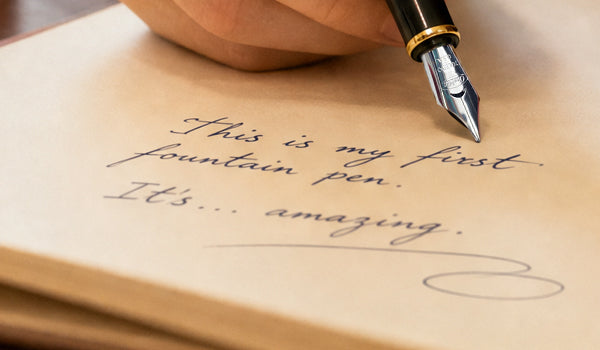 This is my first
fountain pen.
It's... amazing.